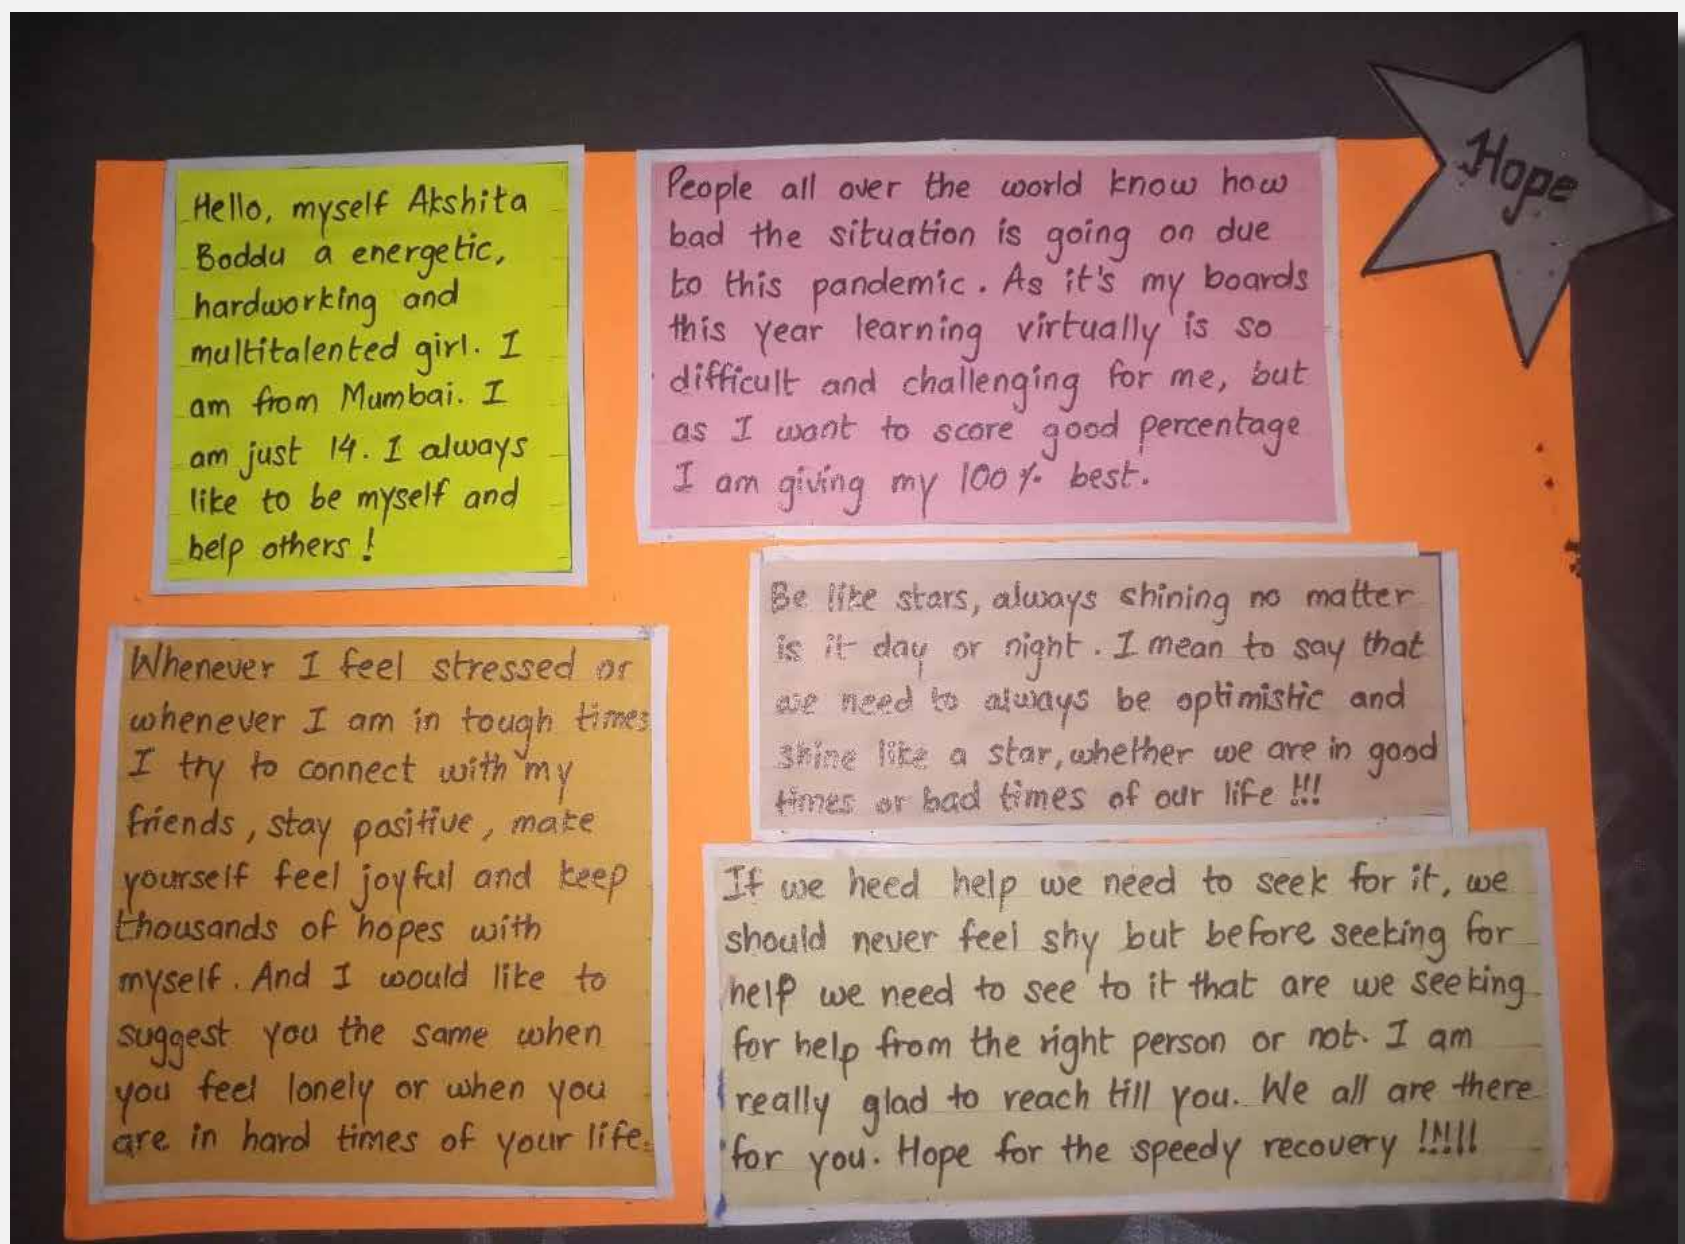 Hope
Hello, myself Akshita
Boddu a energetic,
hardworking and
multitalented girl. I
am from Mumbai. I
am just 14. I always
like to be myself and
help others!
People all over the world know how
bad the situation is going on due
to this pandemic. As it's my boards
this year learning virtually is so
difficult and challenging for me, but
as I want to score good percentage
I am giving my 100% best.
Whenever I feel stressed or
whenever I am in tough times
I try to connect with my
friends, stay positive, make
yourself feel joyful and keep
thousands of hopes with
myself. And I would like to
suggest you the same when
you feel lonely or when you
are in hard times of your life.
Be like stars, always shining no matter
is it day or night. I mean to say that
we need to always be optimistic and
shine like a star, whether we are in good
times or bad times of our life !!!
If we need help we need to seek for it, we
should never feel shy but before seeking for
help we need to see to it that are we seeking
for help from the right person or not. I am
really glad to reach till you. We all are there
for you. Hope for the speedy recovery !!!!!!